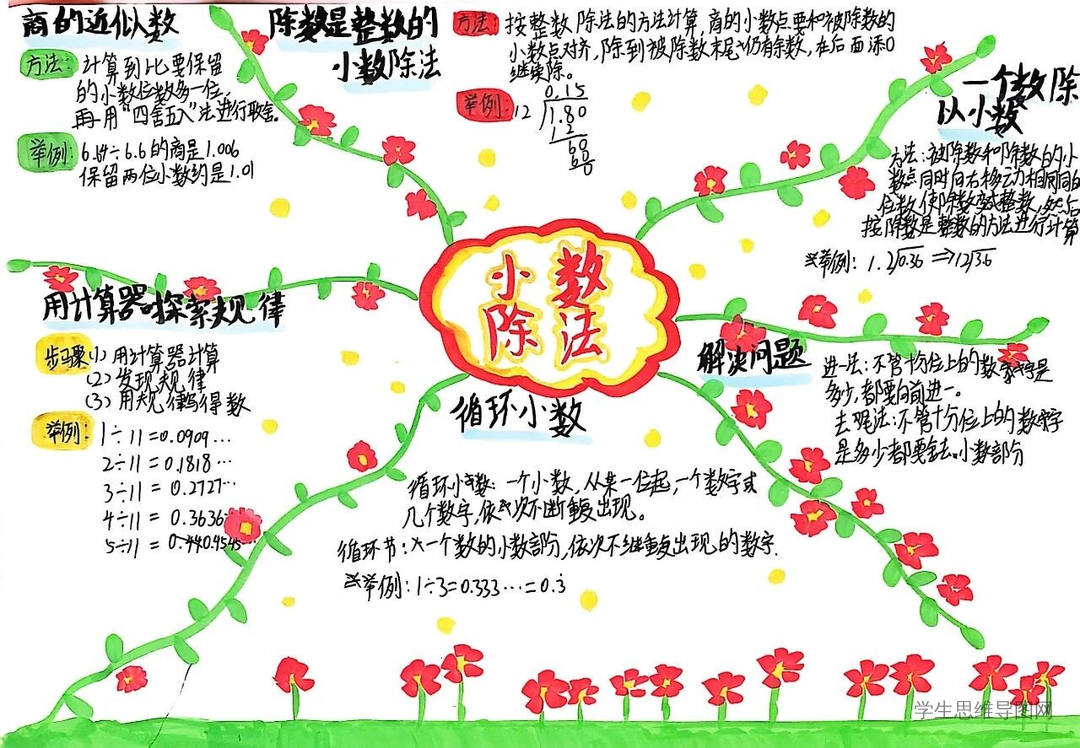 商的近似数
方法:计算到比要保留
的小数位数多一位,
再用“四舍五入”法进行取舍。
举例:6.64÷6.6的商是1.006
保留两位小数约是1.01
除数是整数的
小数除法
方法:按整数除法的方法计算,商的小数点要和被除数的
小数点对齐,除到被除数末尾仍有余数,在后面添0
继续除。
举例:
0.15
12 1.80
12
60
60
0
一个数除
以小数
方法:被除数和除数的小
数点同时向右移动相同的
位数,使除数变成整数,然后
按除数是整数的方法进行计算
举例:1.2 0.36 ⇒12 3.6
小数
除法
用计算器探索规律
步骤(1)用计算器计算
(2)发现规律
(3)用规律写得数
举例:1÷11=0.0909…
2÷11=0.1818…
3÷11=0.2727…
4÷11=0.3636…
5÷11=
解决问题
进一法:不管十分位上的数字是
多少,都要向前进一。
去尾法:不管十分位上的数字
是多少都要舍去小数部分
循环小数
循环小数:一个小数,从某一位起,一个数字或
几个数字,依次不断重复出现。
循环节:一个数的小数部分,依次不断重复出现的数字.
举例:1÷3=0.333…=0.3̇
学生思维导图网